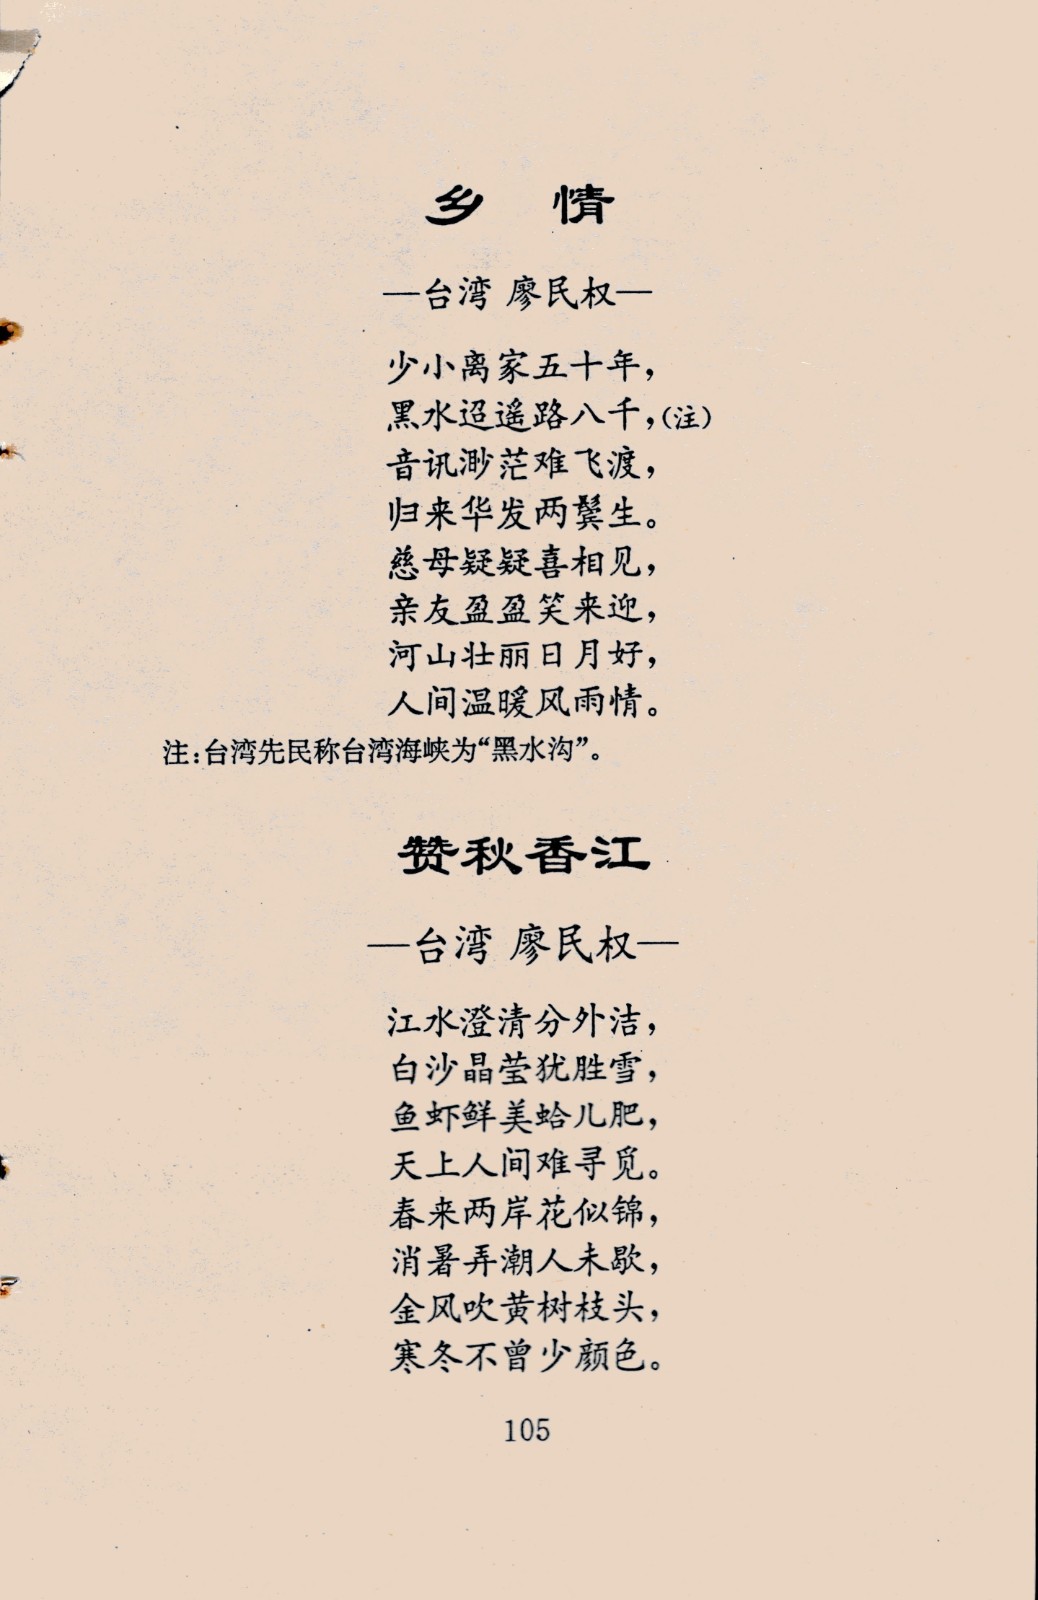 乡 情
—台湾 廖民权—
少小离家五十年，
黑水迢遥路八千，(注)
音讯渺茫难飞渡，
归来华发两鬓生。
慈母疑疑喜相见，
亲友盈盈笑来迎，
河山壮丽日月好，
人间温暖风雨情。
注：台湾先民称台湾海峡为“黑水沟”。
赞秋香江
—台湾 廖民权—
江水澄清分外洁，
白沙晶莹犹胜雪，
鱼虾鲜美蛤儿肥，
天上人间难寻觅。
春来两岸花似锦，
消暑弄潮人未歇，
金风吹黄树枝头，
寒冬不曾少颜色。
105